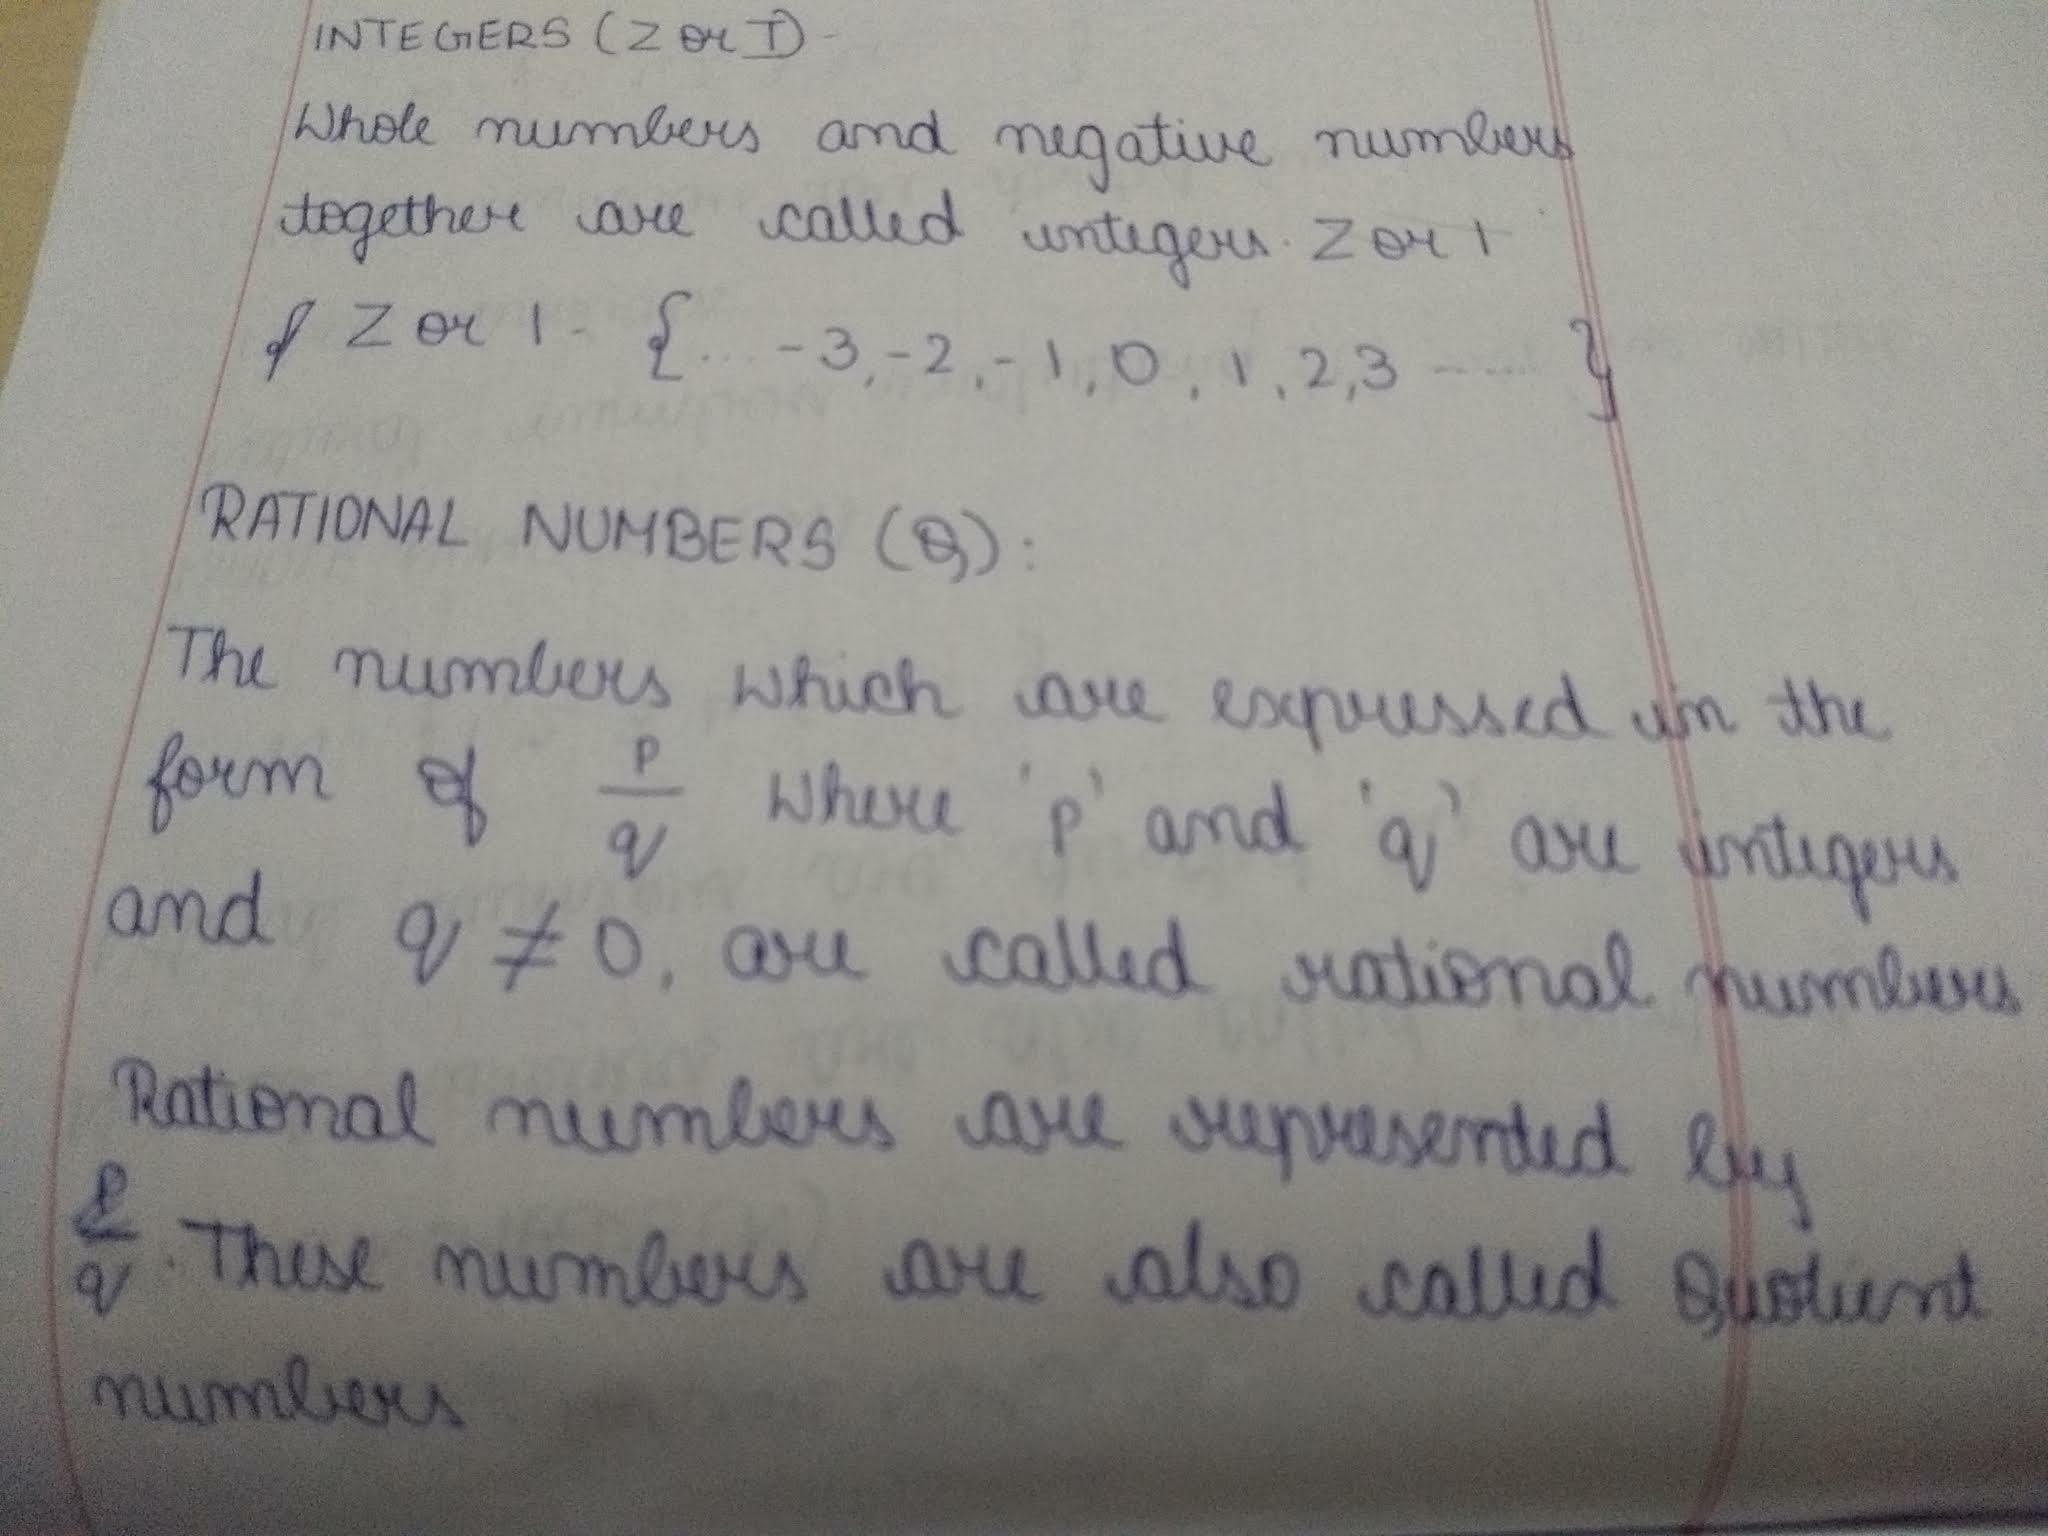 INTEGERS (Z or I)
Whole numbers and negative numbers
together are called integers. Z or I
Z or I - {... -3, -2, -1, 0, 1, 2, 3 ...... }
RATIONAL NUMBERS (Q):
The numbers which are expressed in the
form of p/q where 'p' and 'q' are integers
and q ≠ 0, are called rational numbers
Rational numbers are represented by
p/q. These numbers are also called Quotient
numbers